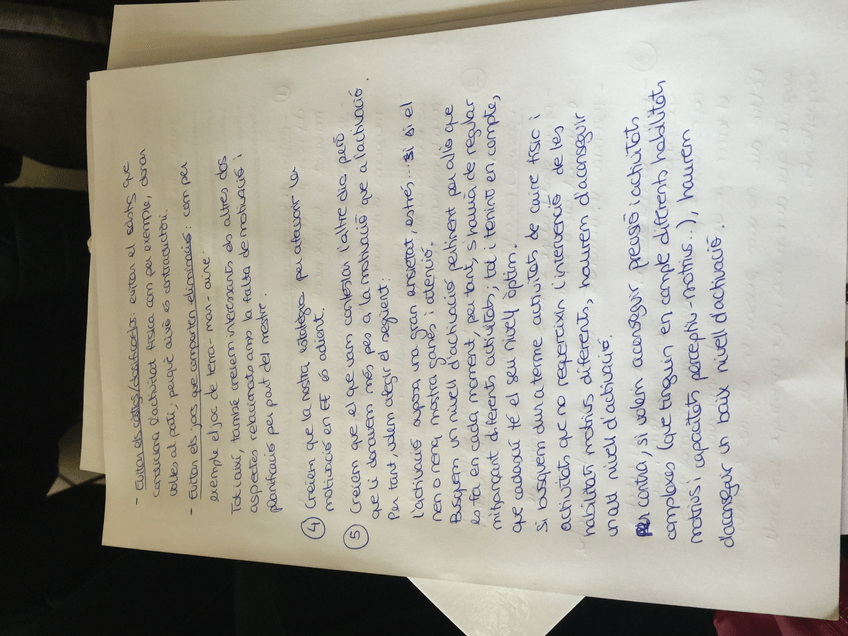 - Evitar els càstigs/ : evitar el càstig que
condiciona l'activitat física com per exemple, donar
voltes al pati, perquè això és contradictori.
- Evitar els jocs que comporten eliminació: com per
exemple el joc de terra-mar-aire.
Tot i així, també creiem interessants els altres dos
aspectes relacionats amb la falta de motivació i
planificació per part del mestre.
4 Creiem que la nostra estratègia per afavorir la
motivació en EF és adient.
5 Creiem que el que vam contestar l'altre dia però
que li donavem més pes a la motivació que a l'activació.
Per tant, volem afegir el següent:
L'activació suposa una gran ansietat, estrés... si si el
nen o nena mostra ganes i atenció.
Busquem un nivell d'activació pertinent per allò que
es fa en cada moment, per tant, s'haurà de regular
mitjançant diferents activitats; tot i tenint en compte,
que cadascú té el seu nivell òptim.
Si busquem dur a terme activitats de caire físic i
activitats que no requereixin l'intervenció de les
habilitats motrius diferents, haurem d'aconseguir
un alt nivell d'activació.
Per contra, si volem aconseguir precisió i activitats
complexes (que tinguin en compte diferents habilitats
motrius i capacitats perceptiu-motrius...), haurem
d'aconseguir un baix nivell d'activació.